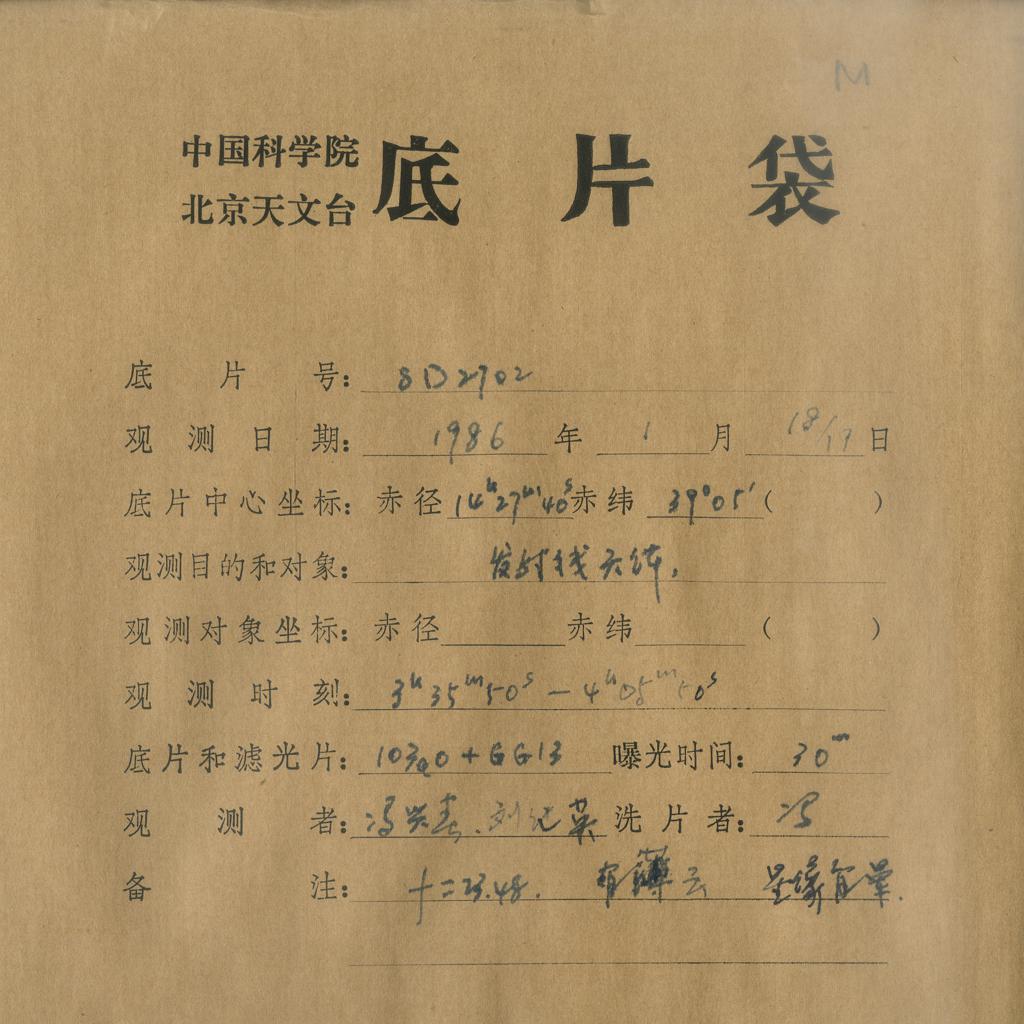 M
中国科学院
北京天文台 底片袋
底片号: SD2702
观测日期: 1986年1月18/17日
底片中心坐标: 赤径14h27m40s赤纬39°05′( )
观测目的和对象: 发射线天体.
观测对象坐标: 赤径 赤纬 ( )
观测时刻: 3h35m50s — 4h05m50s
底片和滤光片: 103aO+GG13 曝光时间: 30m
观测者: 冯兴春.刘纪英 洗片者: 冯
备注: f=23.48. 有薄云 星像有晕.